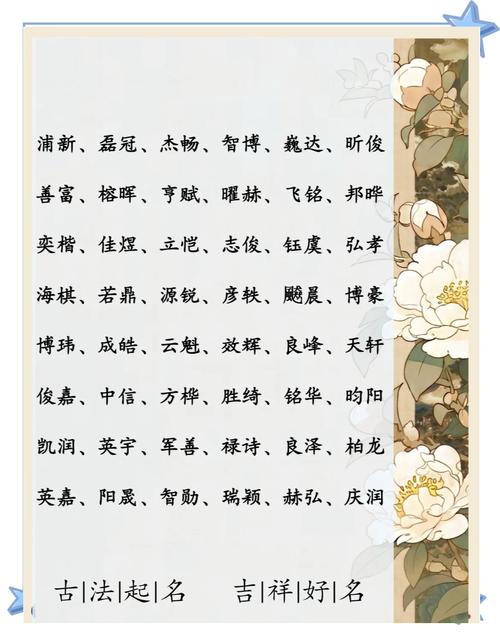 浦新、磊冠、杰畅、智博、巍达、昕俊
善富、榕晖、亨赋、曜赫、飞铭、邦晔
奕楷、佳煜、立恺、志俊、钰虞、弘孝
海棋、若鼎、源锐、彦轶、飚晨、博豪
博玮、成皓、云魁、效辉、良峰、天轩
俊嘉、中信、方桦、胜绮、铭华、昀阳
凯润、英宇、军善、禄诗、良泽、柏龙
英嘉、阳晟、智勋、瑞颖、赫弘、庆润
古|法|起|名 吉|祥|好|名